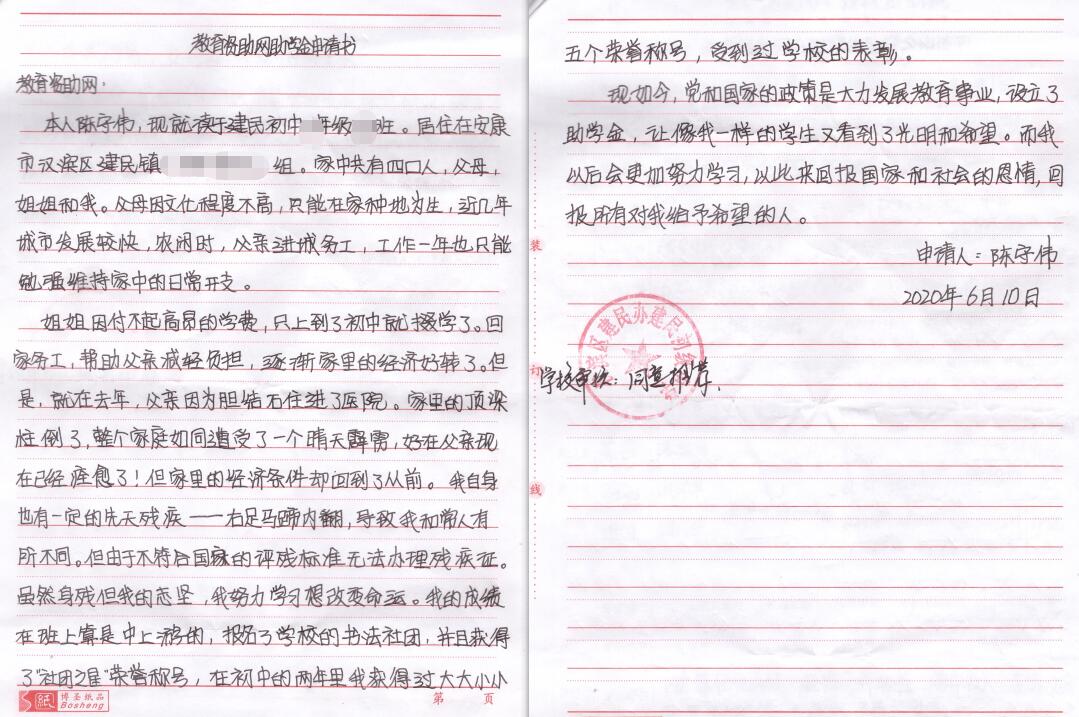 教育资助网助学金申请书
教育资助网：
本人陈守伟，现就读于建民初中 年级 班。居住在安康
市汉滨区建民镇 组。家中共有四口人，父母，
姐姐和我。父母因文化程度不高，只能在家种地为生，近几年
城市发展较快，农闲时，父亲进城务工，工作一年也只能
勉强维持家中的日常开支。
姐姐因付不起高昂的学费，只上到了初中就掇学了。回
家务工，帮助父亲减轻负担，逐渐家里的经济好转了。但
是，就在去年，父亲因为胆结石住进了医院。家里的顶梁
柱倒了，整个家庭如同遭受了一个晴天霹雳，好在父亲现
在已经痊愈了！但家里的经济条件却回到了从前。我自身
也有一定的先天残疾——右足马蹄内翻，导致我和常人有
所不同。但由于不符合国家的评残标准无法办理残疾证。
虽然身残但我的志坚，我努力学习想改变命运。我的成绩
在班上算是中上游的，报名了学校的书法社团，并且获得
了“社团之星”荣誉称号，在初中的两年里我获得过大大小小
博圣纸品
Bosheng
第 页
装
订
线
五个荣誉称号，受到过学校的表彰。
现如今，党和国家的政策是大力发展教育事业，设立了
助学金，让像我一样的学生又看到了光明和希望。而我
以后会更加努力学习，以此来回报国家和社会的恩情，回
报所有对我给予希望的人。
申请人：陈守伟
2020年6月10日
滨区建民办建民初级
学校审核：同意推荐.